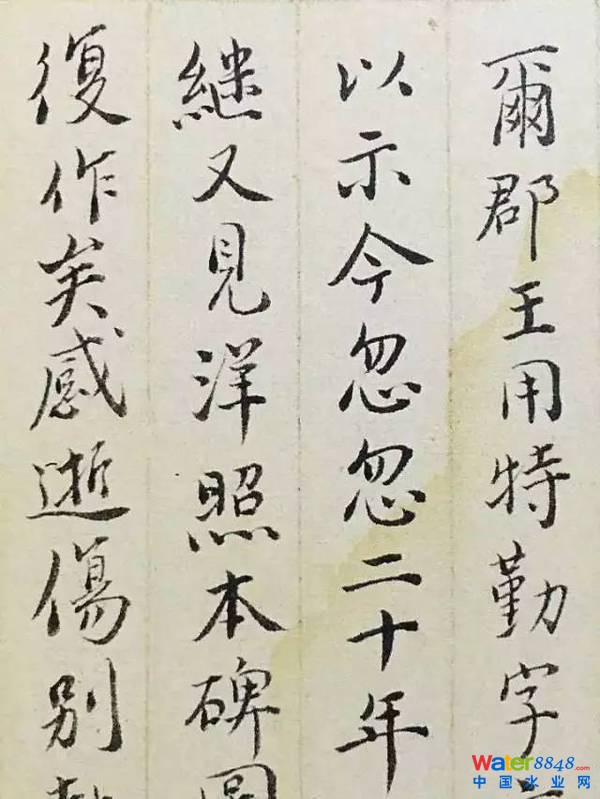 爾郡王用特勤字
以示今忽忽二十年
继又見洋照本碑
復作矣感逝傷别
Water8848.com
中国水业网